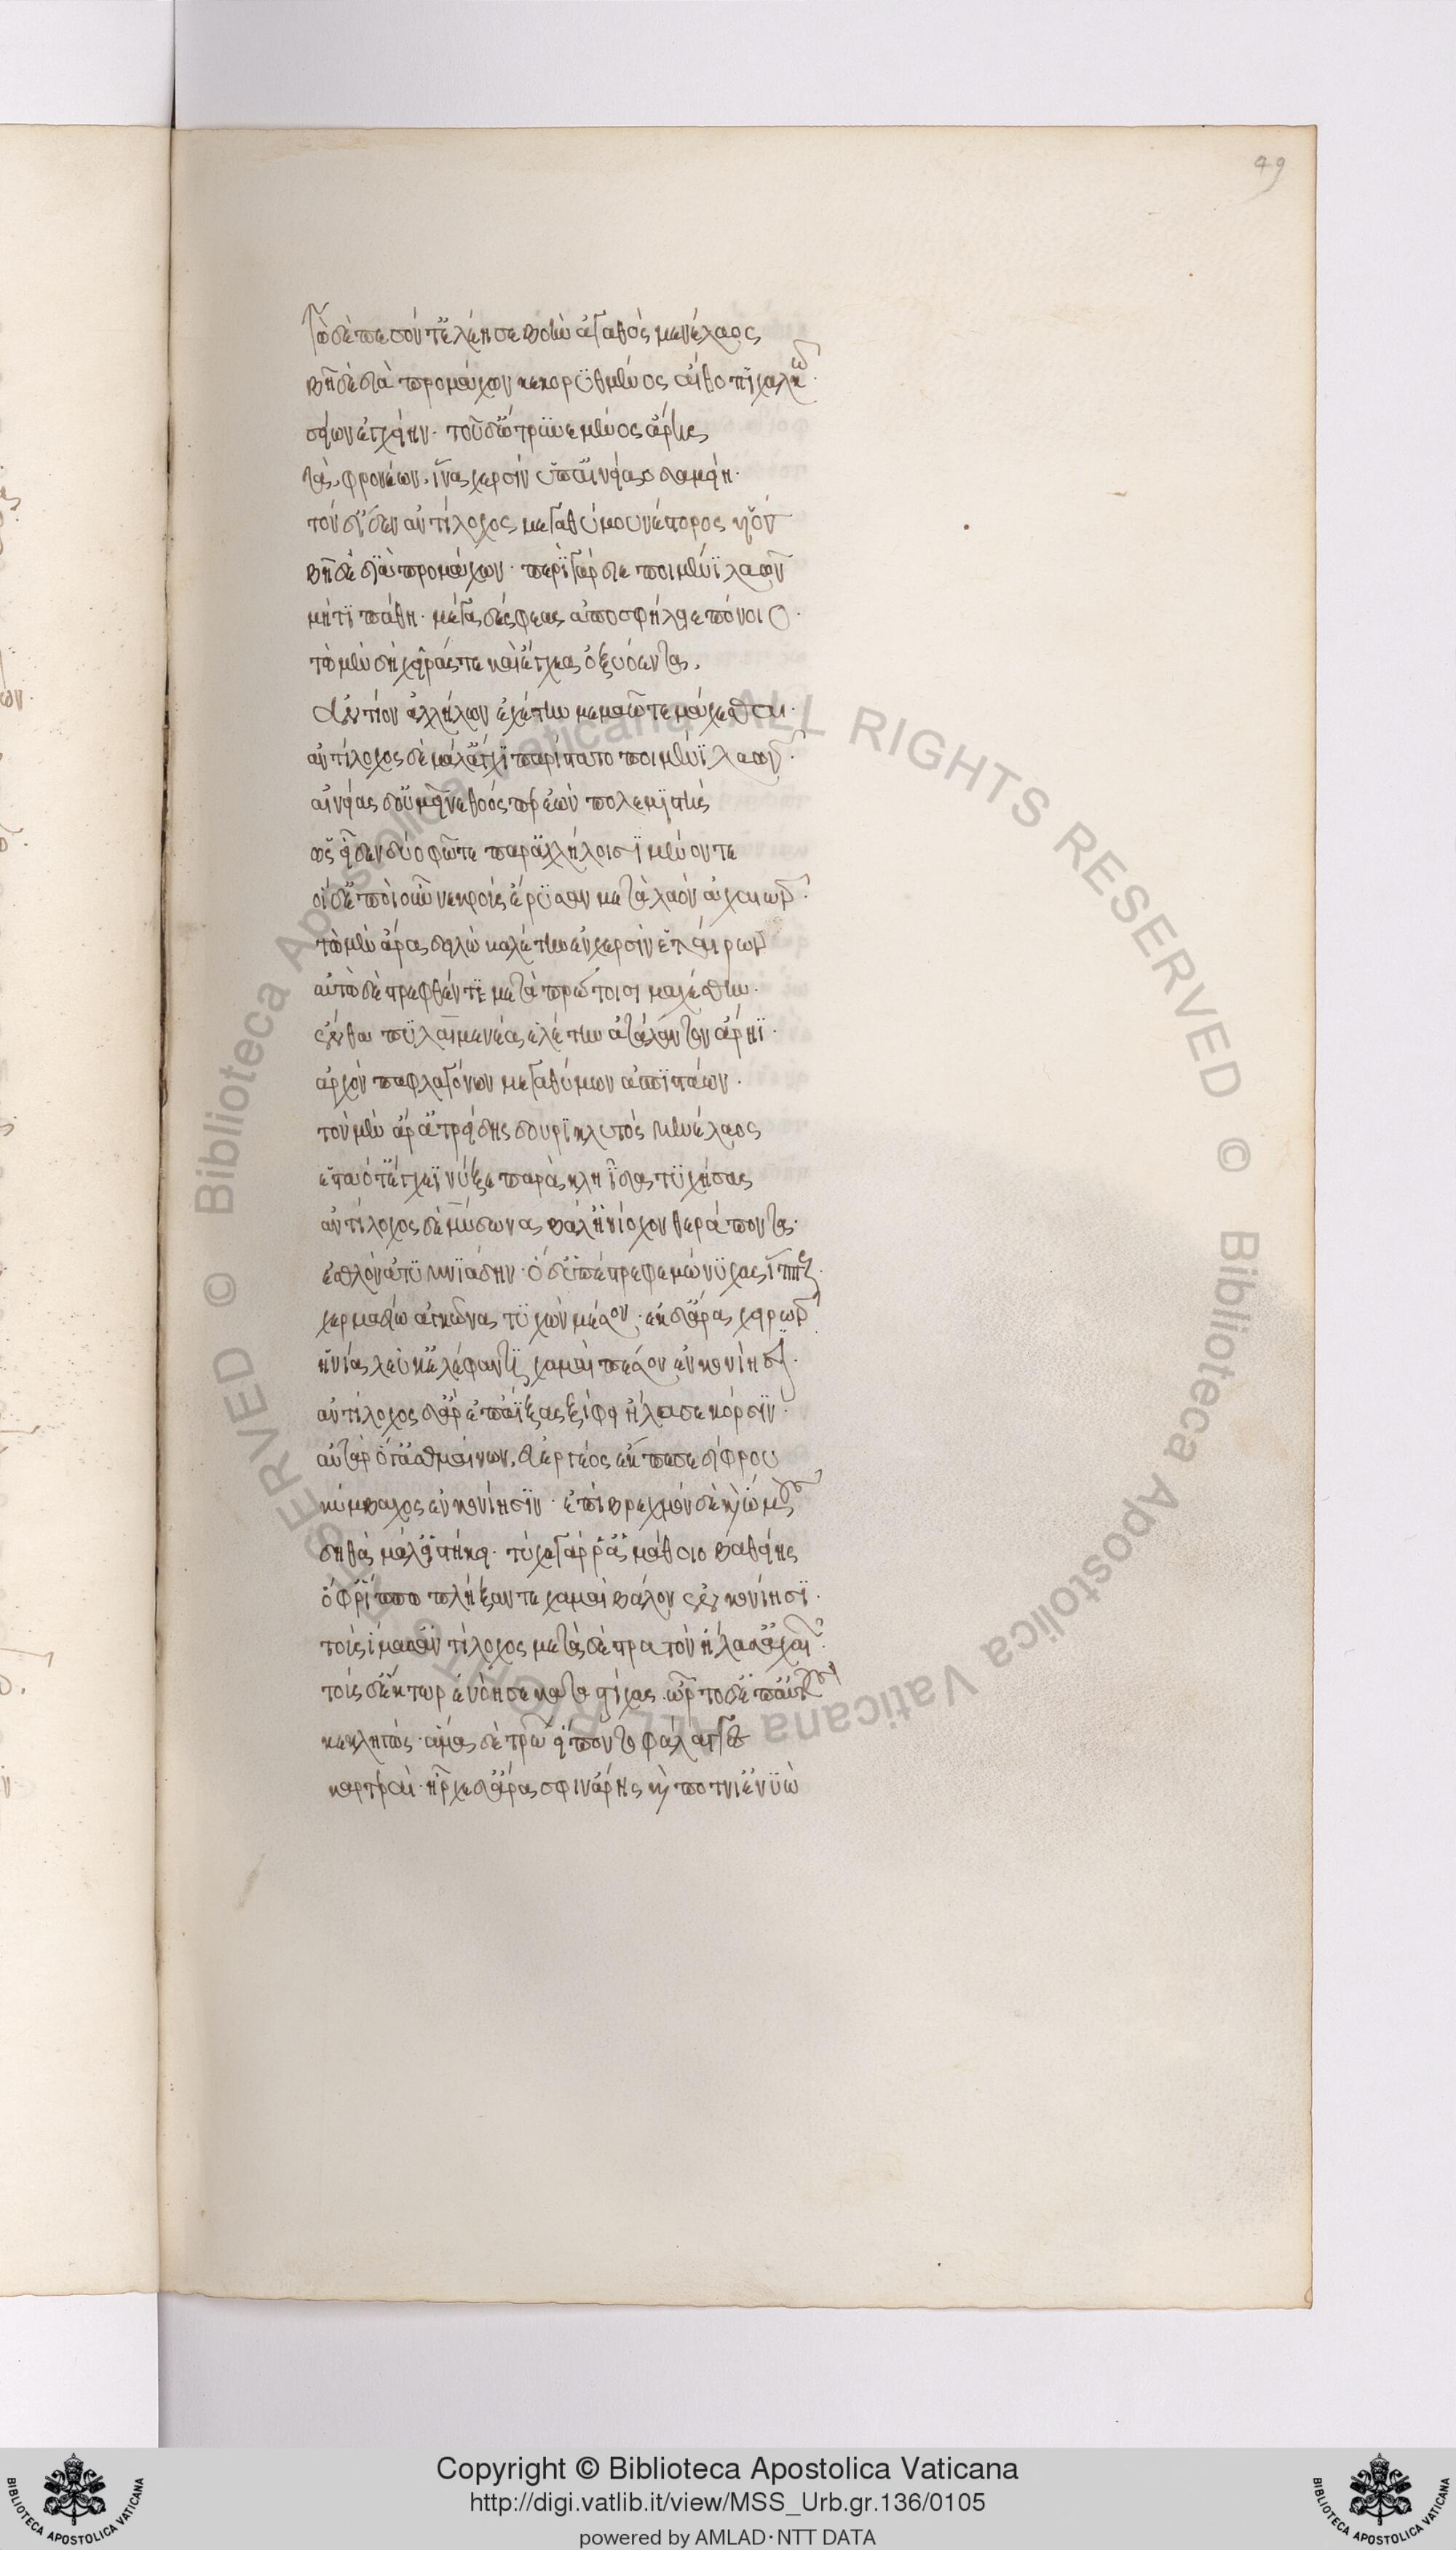 Τὼ δὲ πεσόντ' ἐλέησε βοὴν ἀγαθὸς μενέλαος
βῆ δὲ διὰ προμάχων κεκορϋθμένος αἴθοπϊ χαλκῶ·
σείων ἐγχείην· τοῦ δ' ὤτρϋνε μένος ἄρης
τὰ φρονέων, ἵνα χερσὶν ὑπ' αἰνείαο δαμείη·
τὸν δ' ἴδεν ἀντίλοχος μεγαθύμου νέστορος ϋἱὸς
βῆ δὲ διὰ προμάχων· περὶ γὰρ δίε ποιμένϊ λαῶν
μήτϊ πάθη· μέγα δέ σφεας ἀποσφήλειε πόνοιο·
τὼ μὲν δὴ χεῖράς τε καὶ ἔγχεα ὀξυόεντα,
ἀντίον ἀλλήλων ἐχέτην μεμαῶτε μάχεσθαι·
ἀντίλοχος δὲ μάλ' ἄγχϊ παρίστατο ποιμένϊ λαῶν·
αἰνείας δ' οὐ μεῖνε θοός περ ἐὼν πολεμϊστὴς
ὡς εἶδεν δύο φῶτε παρ' ἀλλήλοισϊ μένοντε
οἱ δ' ἐπεὶ οὖν νεκροὺς ἔρϋσαν μετὰ λαὸν ἀχαιῶν·
τὼ μὲν ἄρα δειλὼ βαλέτην ἐν χερσὶν ἑταίρων
αὐτὼ δὲ στρεφθέντε μετὰ πρώτοισι μαχέσθην·
ἔνθα πϋλαιμενέα ἑλέτην ἀτάλαντον ἄρηϊ·
ἀρχὸν παφλαγόνων μεγαθύμων ἀσπϊστάων·
τὸν μὲν ἄρ' ἀτρείδης δουρϊκλυτὸς μενέλαος
ἑσταότ' ἔγχεϊ νύξε παρὰ κληῖδα τϋχήσας
ἀντίλοχος δὲ μύδωνα βάλ' ἡνίοχον θεράποντα·
ἐσθλὸν ἀτϋμνϊάδην· ὁ δ' ὑπέστρεφε μώνϋχας ἵππους·
χερμαδίω ἀγκῶνα τϋχὼν μέσον· ἐκ δ' ἄρα χειρῶν
ἡνία λεύκ' ἐλέφαντϊ χαμαὶ πέσον ἐν κονίησϊν·
ἀντίλοχος δ' ἄρ' ἐπαΐξας ξίφει ἤλασε κόρσϊν·
αὐτὰρ ὅγ' ἀσθμαίνων, εὐεργέος ἔκπεσε δίφρου
κύμβαχος ἐν κονίησϊν· ἐπὶ βρεχμόν δὲ κὶ ὤμους
δηθὰ μάλ' εἱστήκει· τύχε γάρ ῥ' ἀμάθοιο βαθείης
ὄφρ' ἵππω πλήξαντε χαμαὶ βάλον ἐν κονίησϊ·
τοὺς ἵμασ' ἀντίλοχος μετὰ δὲ στρατὸν ἤλασ' ἀχαιῶν·
τοὺς δ' ἕκτωρ ἐνόησε κατὰ στίχας. ὦρτο δ' ἐπ' αὐτοὺς
κεκληγώς· ἅμα δὲ τρώων εἵποντο φάλαγγες
καρτεραί· ἦρχε δ' ἄρα σφιν ἄρης κὶ ποτνι' ἐνϋὼ
49
Copyright © Biblioteca Apostolica Vaticana
http://digi.vatlib.it/view/MSS_Urb.gr.136/0105
powered by AMLAD·NTT DATA